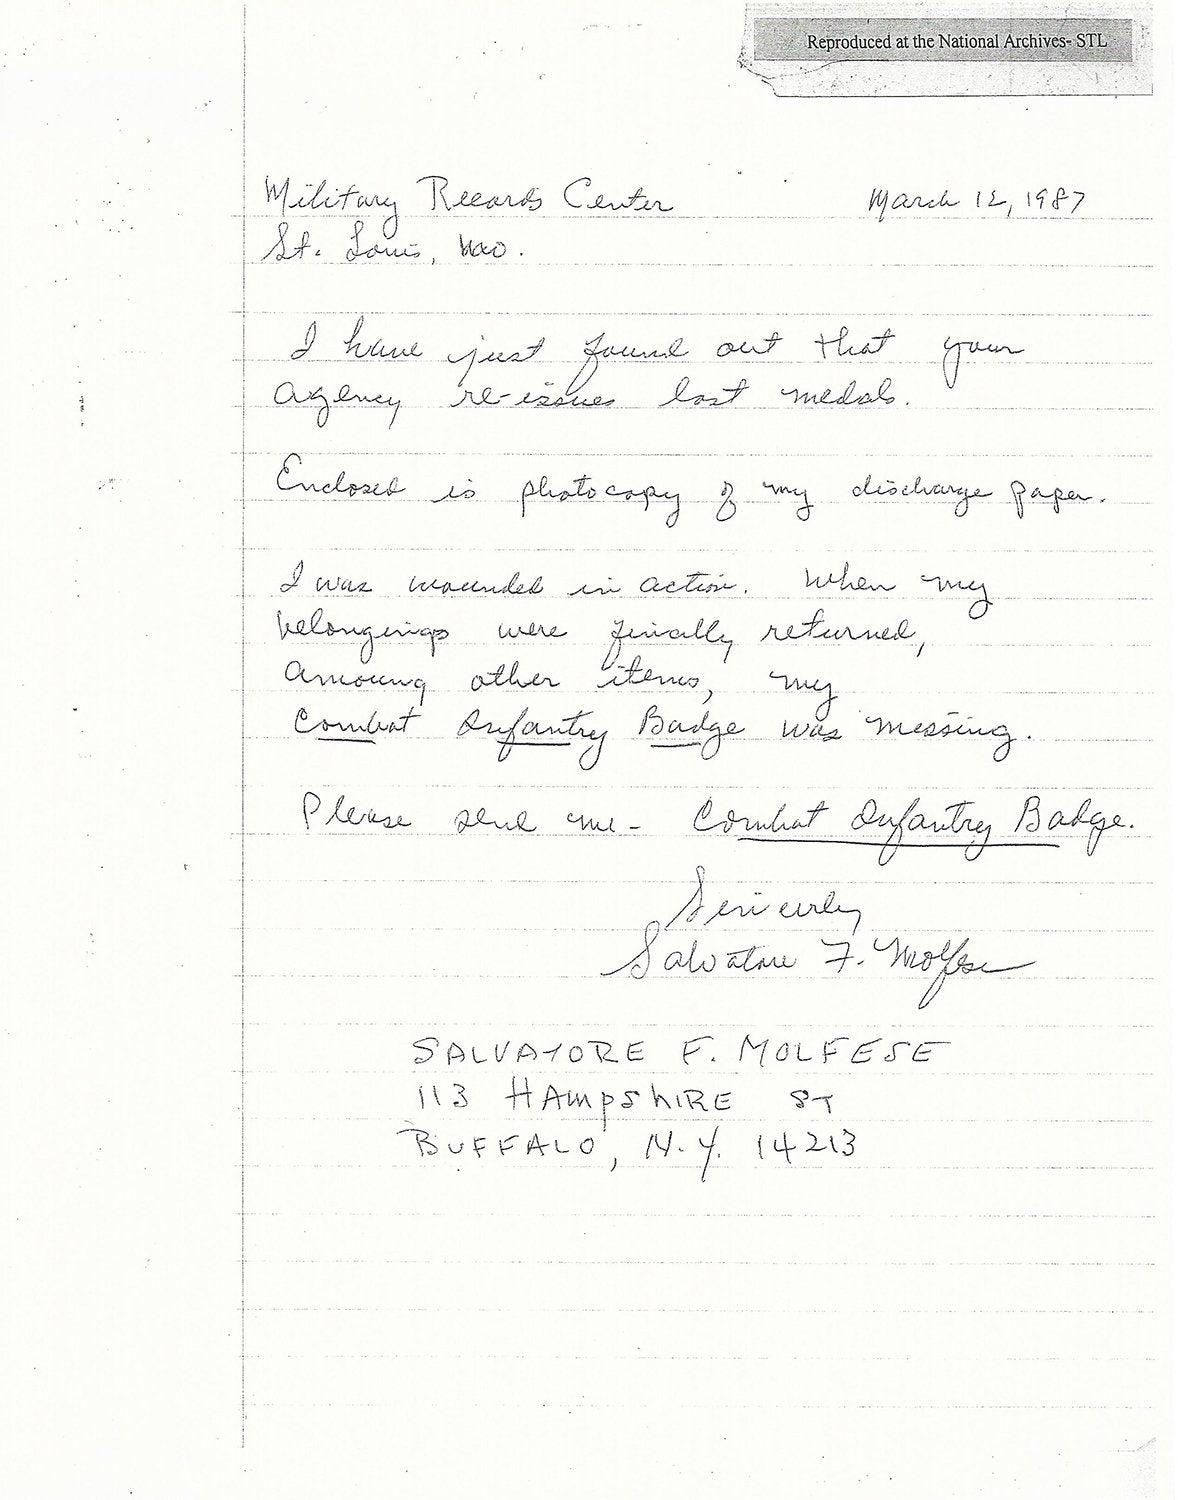 Reproduced at the National Archives- STL
Military Records Center March 12, 1987
St. Louis, Mo.
I have just found out that your
agency re-issues lost medals.
Enclosed is photocopy of my discharge paper.
I was wounded in action. When my
belongings were finally returned,
amoung other items, my
Combat Infantry Badge was missing.
Please send me - Combat Infantry Badge.
Sincerly
Salvatore F. Molfese
SALVATORE F. MOLFESE
113 HAMPSHIRE ST
BUFFALO, N.Y. 14213